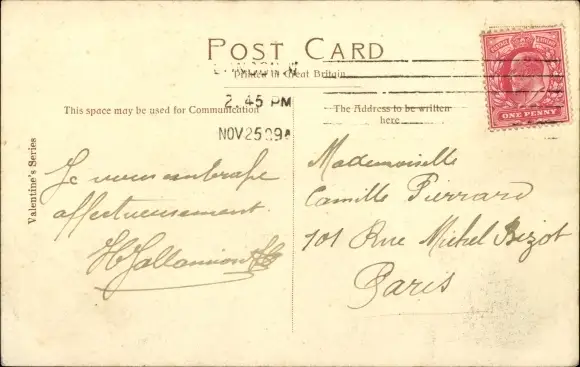 POST CARD
Printed in Great Britain
LONDON.W
2.45 PM
NOV 25 09
This space may be used for Communication
The Address to be written
here
ONE PENNY
Valentine's Series
Je vous embrasse
affectueusement
Mademoiselle
Camille Pierrard
101 Rue Michel Bizot
Paris